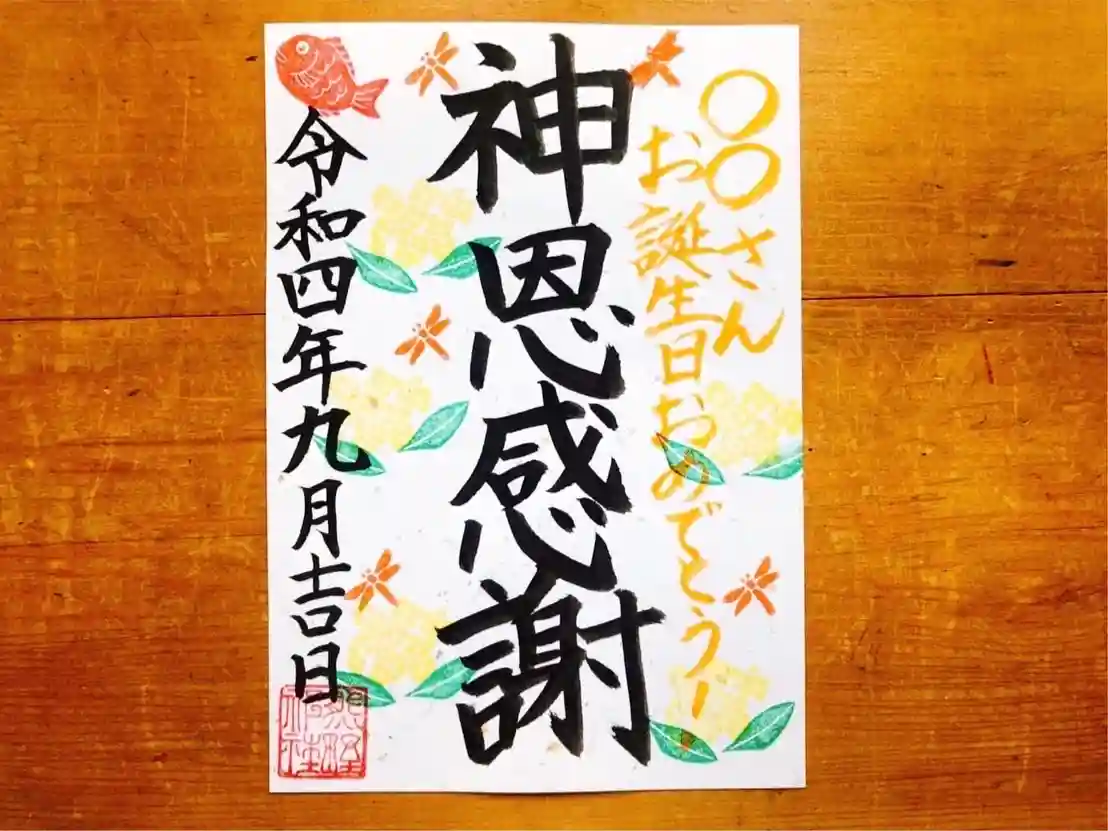 〇〇さん
お誕生日おめでとうー
神恩感謝
令和四年九月吉日